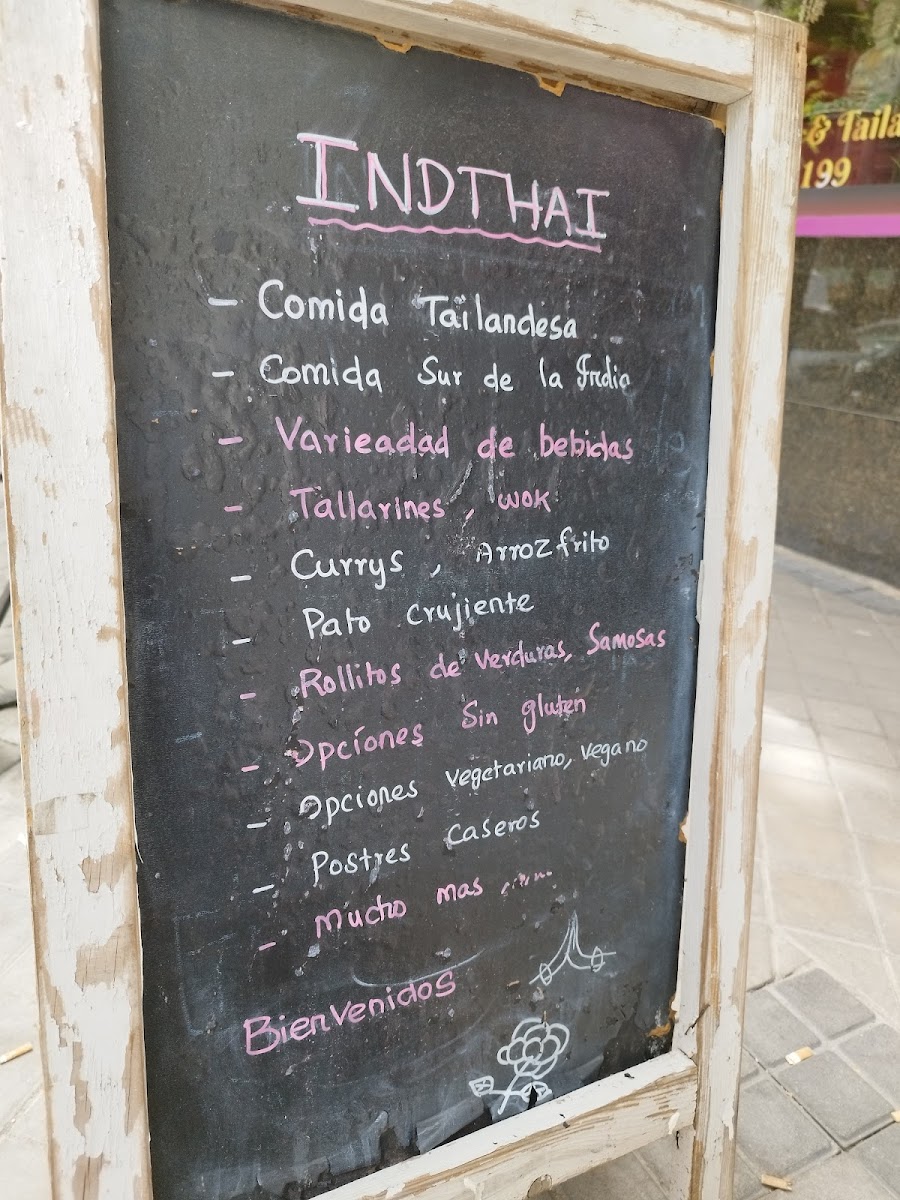 INDTHAI
- Comida Tailandesa
- Comida Sur de la India
- Varieadad de bebidas
- Tallarines, wok
- Currys, Arroz frito
- Pato crujiente
- Rollitos de verduras, Samosas
- Opciones Sin gluten
- Opciones vegetariano, vegano
- Postres caseros
- Mucho mas ,.....
Bienvenidos
& Taila
199